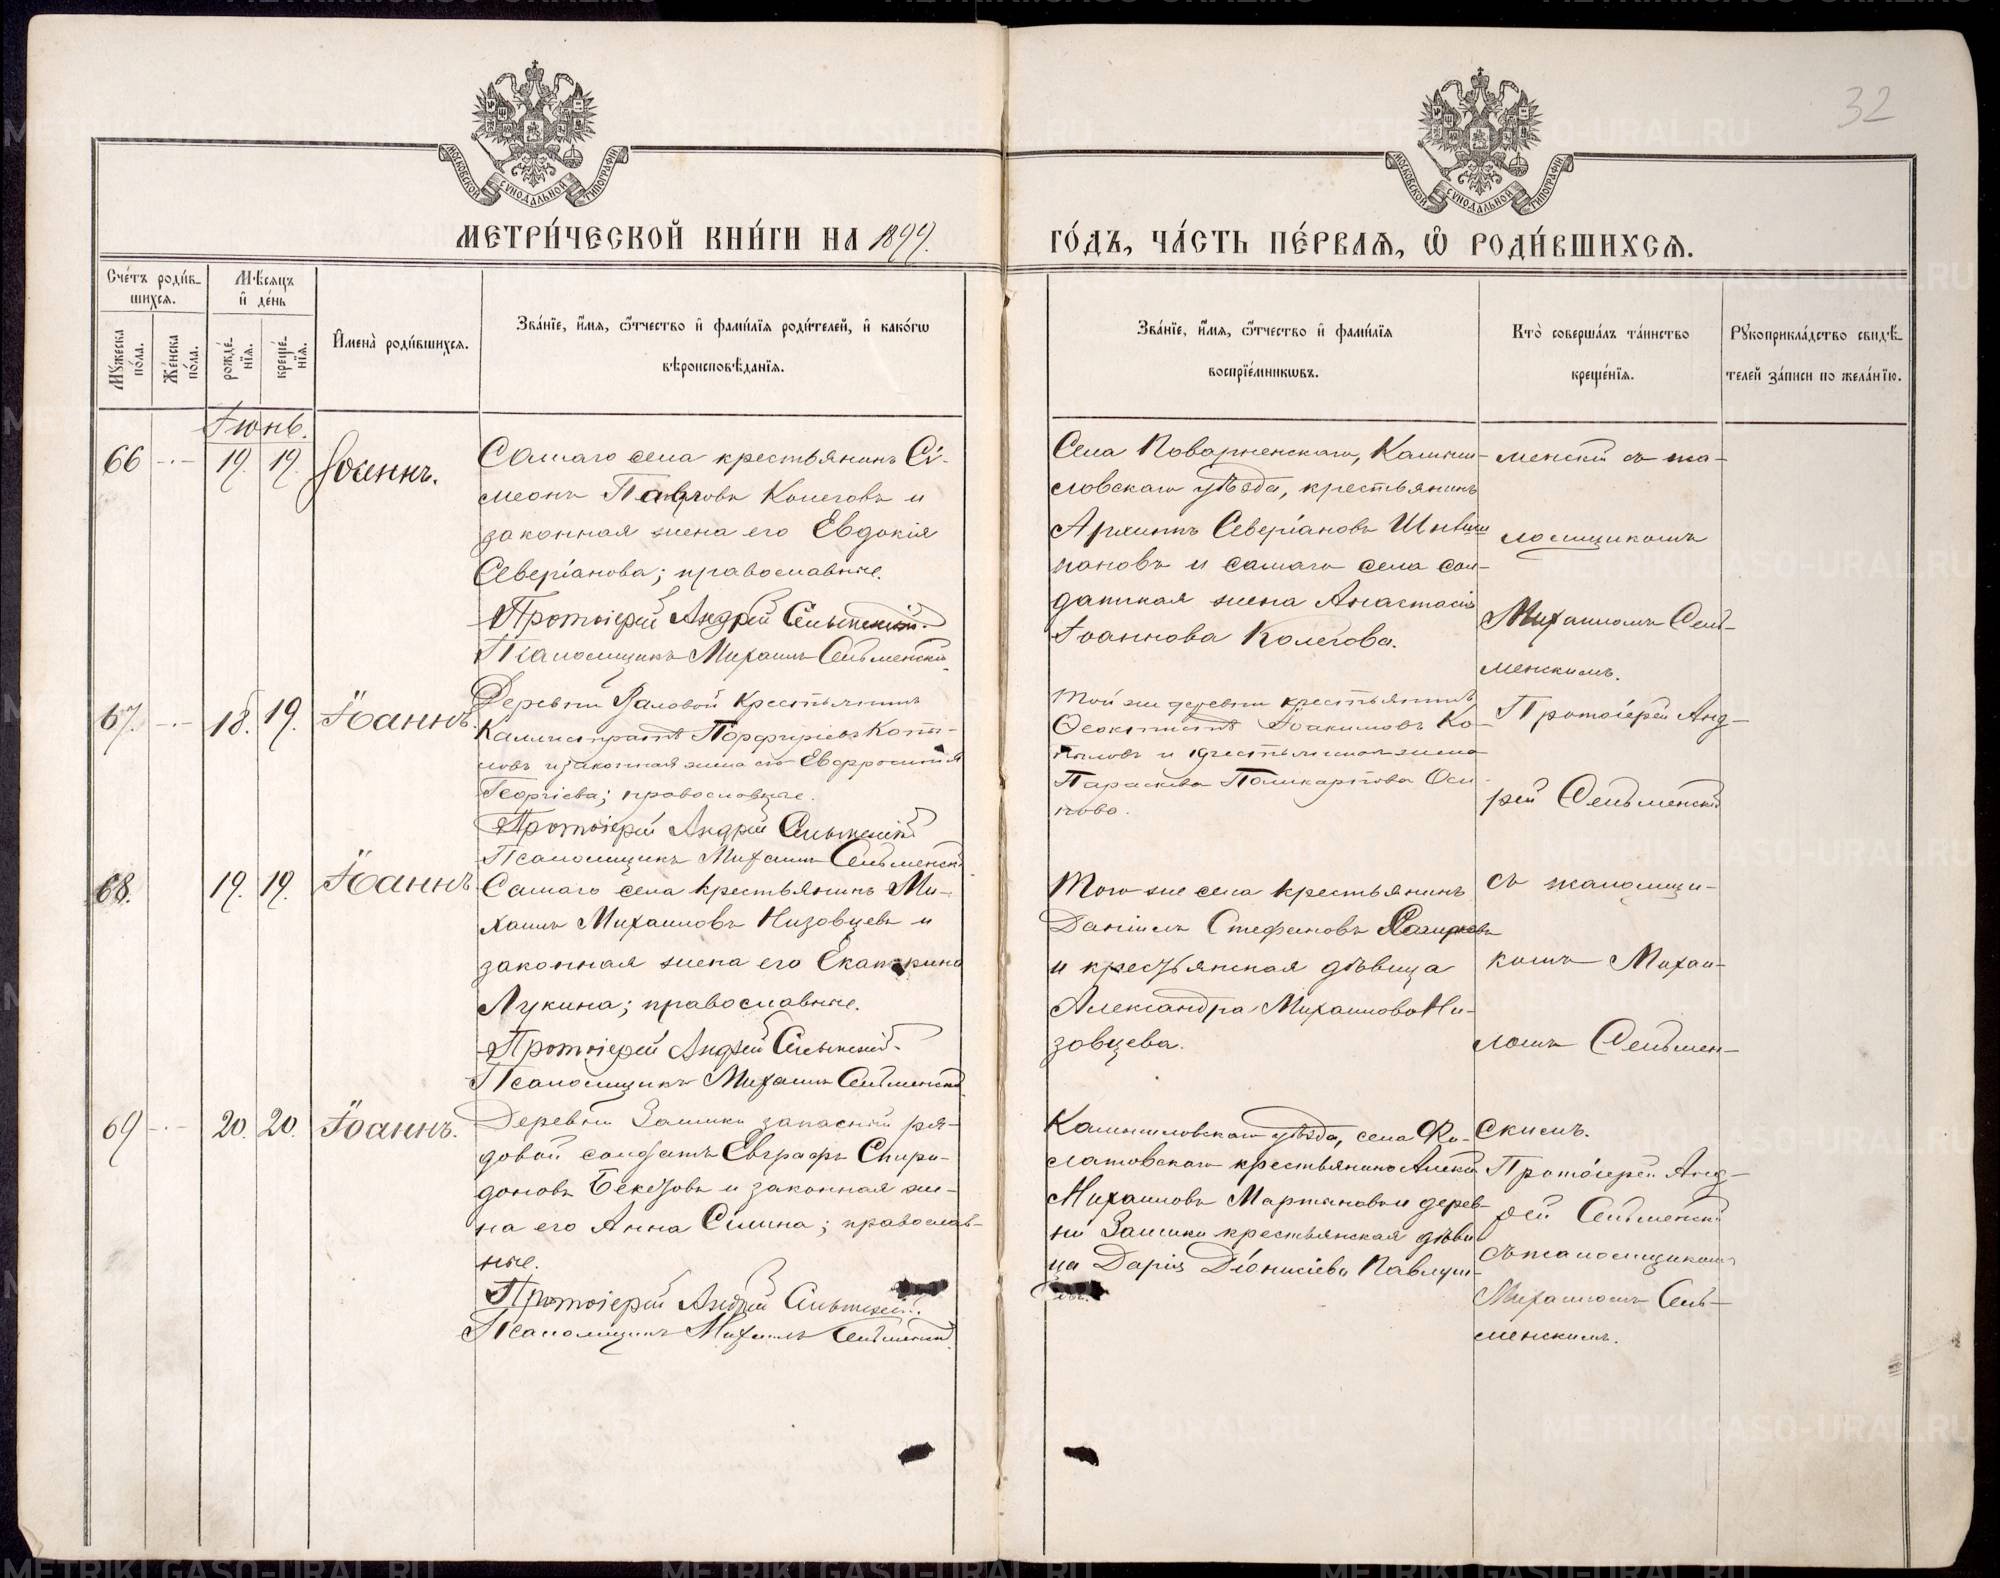 32
МОСКОВСКОЙ СУНОДАЛЬНОЙ ТИПОГРАФІИ
МОСКОВСКОЙ СУНОДАЛЬНОЙ ТИПОГРАФІИ
МЕТРИ́ЧЕСКОЙ КНИ́ГИ НА 1899.
ГО́ДЪ, ЧА́СТЬ ПЕ́РВАЯ, Ѿ РОДИ́ВШИХСЯ.
Сче́тъ роди́в-
шихся.
Мѣ́сяцъ
и҆ де́нь
Мꙋжеска по́ла.
Же́нска по́ла.
рожде́-нїя.
креще́-нїя.
И҆мена̀ роди́вшихся.
Зва́нїе, и҆́мя, ѻ҆́тчество и҆ фами́лїя роди́телей, и҆ како́гѡ
вѣроисповѣ́данїя.
Зва́нїе, и҆́мя, ѻ҆́тчество и҆ фами́лїя
воспрїе́мникѡвъ.
Кто̀ соверша́лъ та́инство
креще́нїя.
Рꙋкоприкла́дство свидѣ́-
телей за́писи по жела́нїю.
Іюнь.
66 -·- 19. 19. Іоаннъ.
Самаго села крестьянинъ Сі-
меонъ Павловъ Колеговъ и
законная жена его Евдокія
Северіанова; православные.
Протоіерей Андрей Сельменскій.
Псаломщикъ Михаилъ Сельменскій.
Села Поварненскаго, Камыш-
ловскаго уѣзда, крестьянинъ
Архиппъ Северіановъ
пановъ и самаго села сол-
датская жена Анастасія
Іоаннова Колегова.
менскій съ пса-
ломщикомъ
Михаиломъ Сель-
менскимъ.
67. -·- 18. 19. Іоаннъ.
Деревни крестьянинъ
Каллистратъ Порфирьевъ Копы-
ловъ и законная жена его Евфросинія
Георгіева; православные.
Протоіерей Андрей Сельменскій
Псаломщикъ Михаилъ Сельменскій
Той же деревни крестьянинъ
Феоктистъ Іоакимовъ Ко-
пыловъ и крестьянская жена
Параскева Поликарпова Оси-
пова.
Протоіерей Анд-
рей Сельменскій
68. 19. 19. Іоаннъ
Самаго села крестьянинъ Ми-
хаилъ Михаиловъ Низовцевъ и
законная жена его Екатерина
Лукина; православные.
Протоіерей Андрей Сельменскій.
Псаломщикъ Михаилъ Сельменскій
Того же села крестьянинъ
Даніилъ Стефановъ
и крестьянская дѣвица
Александра Михаилова Ни-
зовцева.
съ псаломщи-
комъ Михаи-
ломъ Сельмен-
скимъ.
69 -·- 20. 20. Іоаннъ.
Деревни Заимки запасный ря-
довой солдатъ Евграфъ Спири-
доновъ Бекетовъ и законная же-
на его Анна Силина; православ-
ные.
Протоіерей Андрей Сельменскій.
Псаломщикъ Михаилъ Сельменскій.
Камышловскаго уѣзда, села
крестьянинъ Алексѣй
Михаиловъ Мартыновъ и дерев-
ни Заимки крестьянская дѣви
ца Дарія Діонисіева
Протоіерей Анд-
рей Сельменскій
съ псаломщикомъ
Михаиломъ Сель-
менскимъ.
METRIKI.GASO-URAL.RU